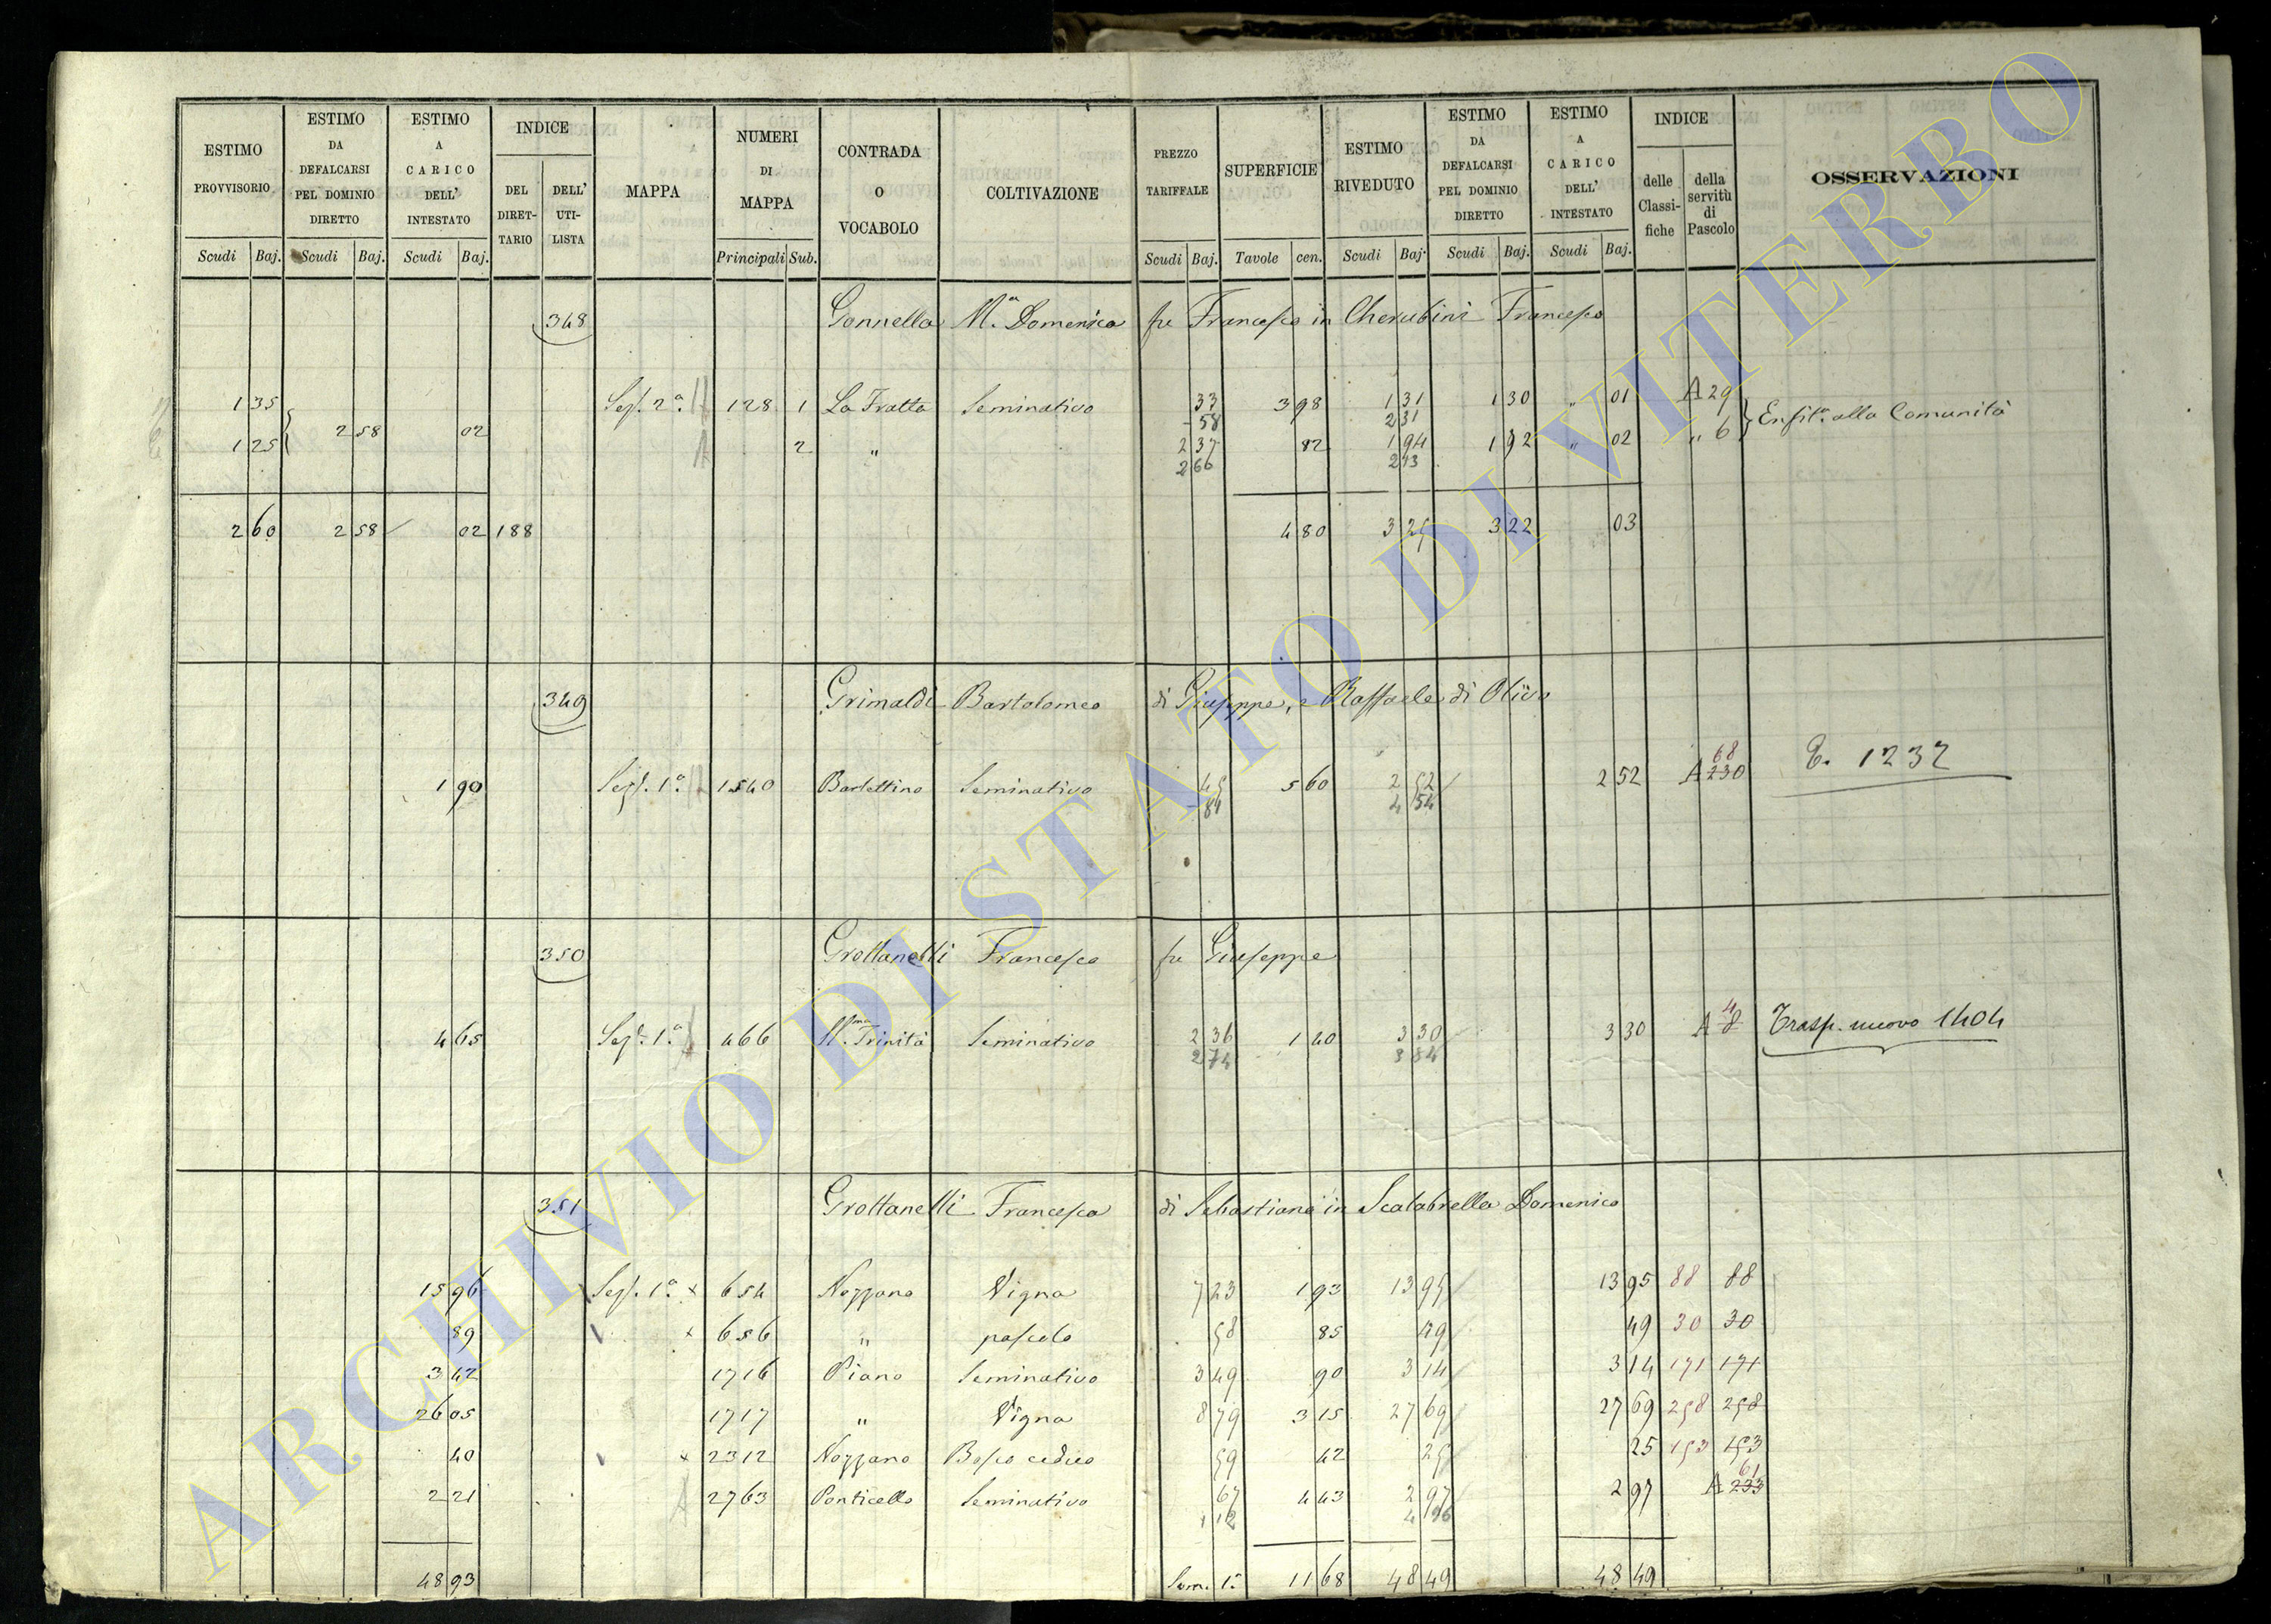 ESTIMO PROVVISORIO | ESTIMO DA DEFALCARSI PEL DOMINIO DIRETTO | ESTIMO A CARICO DELL' INTESTATO | INDICE | MAPPA | NUMERI DI MAPPA | CONTRADA O VOCABOLO | COLTIVAZIONE | PREZZO TARIFFALE | SUPERFICIE | ESTIMO RIVEDUTO | ESTIMO DA DEFALCARSI PEL DOMINIO DIRETTO | ESTIMO A CARICO DELL' INTESTATO | INDICE | OSSERVAZIONI
DEL DIRET-TARIO | DELL' UTI-LISTA | delle Classi-fiche | della servitù di Pascolo
Scudi | Baj. | Scudi | Baj. | Scudi | Baj. | Principali | Sub. | Scudi | Baj. | Tavole | cen. | Scudi | Baj. | Scudi | Baj. | Scudi | Baj.
348 Gonnella Mª Domenica fu Francesco in Cherubini Francesco
1 35 | Sez. 2ª | 128 | 1 | La Fratta | Seminativo | 33 | 3 98 | 1 31 | 1 30 | " 01 | A 29
58 | 2 31
2 58 | 02 | Enfit. alla Comunità
1 25 | 2 | " | 2 37 | 82 | 1 94 | 1 92 | " 02 | " 6
2 66 | 2 13
2 60 | 2 58 | 02 | 188 | 4 80 | 3 25 | 3 22 | 03
349 Grimaldi Bartolomeo di Giuseppe, e Raffaele di Olivo
1 90 | Sez. 1ª | 1540 | Barlettino | Seminativo | 45 | 5 60 | 2 52 | 2 52 | A 230 | 68 | E. 1232
81 | 4 54
350 Grottanelli Francesco fu Giuseppe
4 65 | Sez. 1ª | 466 | SSma Trinità | Seminativo | 2 36 | 1 40 | 3 30 | 3 30 | A 8 | 4 | Trasp. nuovo 1404
2 74 | 3 84
351 Grottanelli Francesca di Sebastiano in Scalabrella Domenico
15 96 | Sez. 1ª | x | 654 | Nozzano | Vigna | 7 23 | 1 93 | 13 95 | 13 95 | 88 | 88
89 | x | 656 | " | pascolo | 58 | 85 | 49 | 49 | 30 | 30
3 42 | 1716 | Piano | Seminativo | 3 49 | 90 | 3 14 | 3 14 | 171 | 171
26 05 | 1717 | " | Vigna | 8 79 | 3 15 | 27 69 | 27 69 | 258 | 258
40 | x | 2312 | Nozzano | Bosco ceduo | 59 | 42 | 25 | 25 | 153 | 153
2 21 | 2763 | Ponticello | Seminativo | 67 | 4 43 | 2 97 | 2 97 | A 233 | 61
1 12 | 4 96
48 93 | Som. 1ª | 11 68 | 48 49 | 48 49
ARCHIVIO DI STATO DI VITERBO